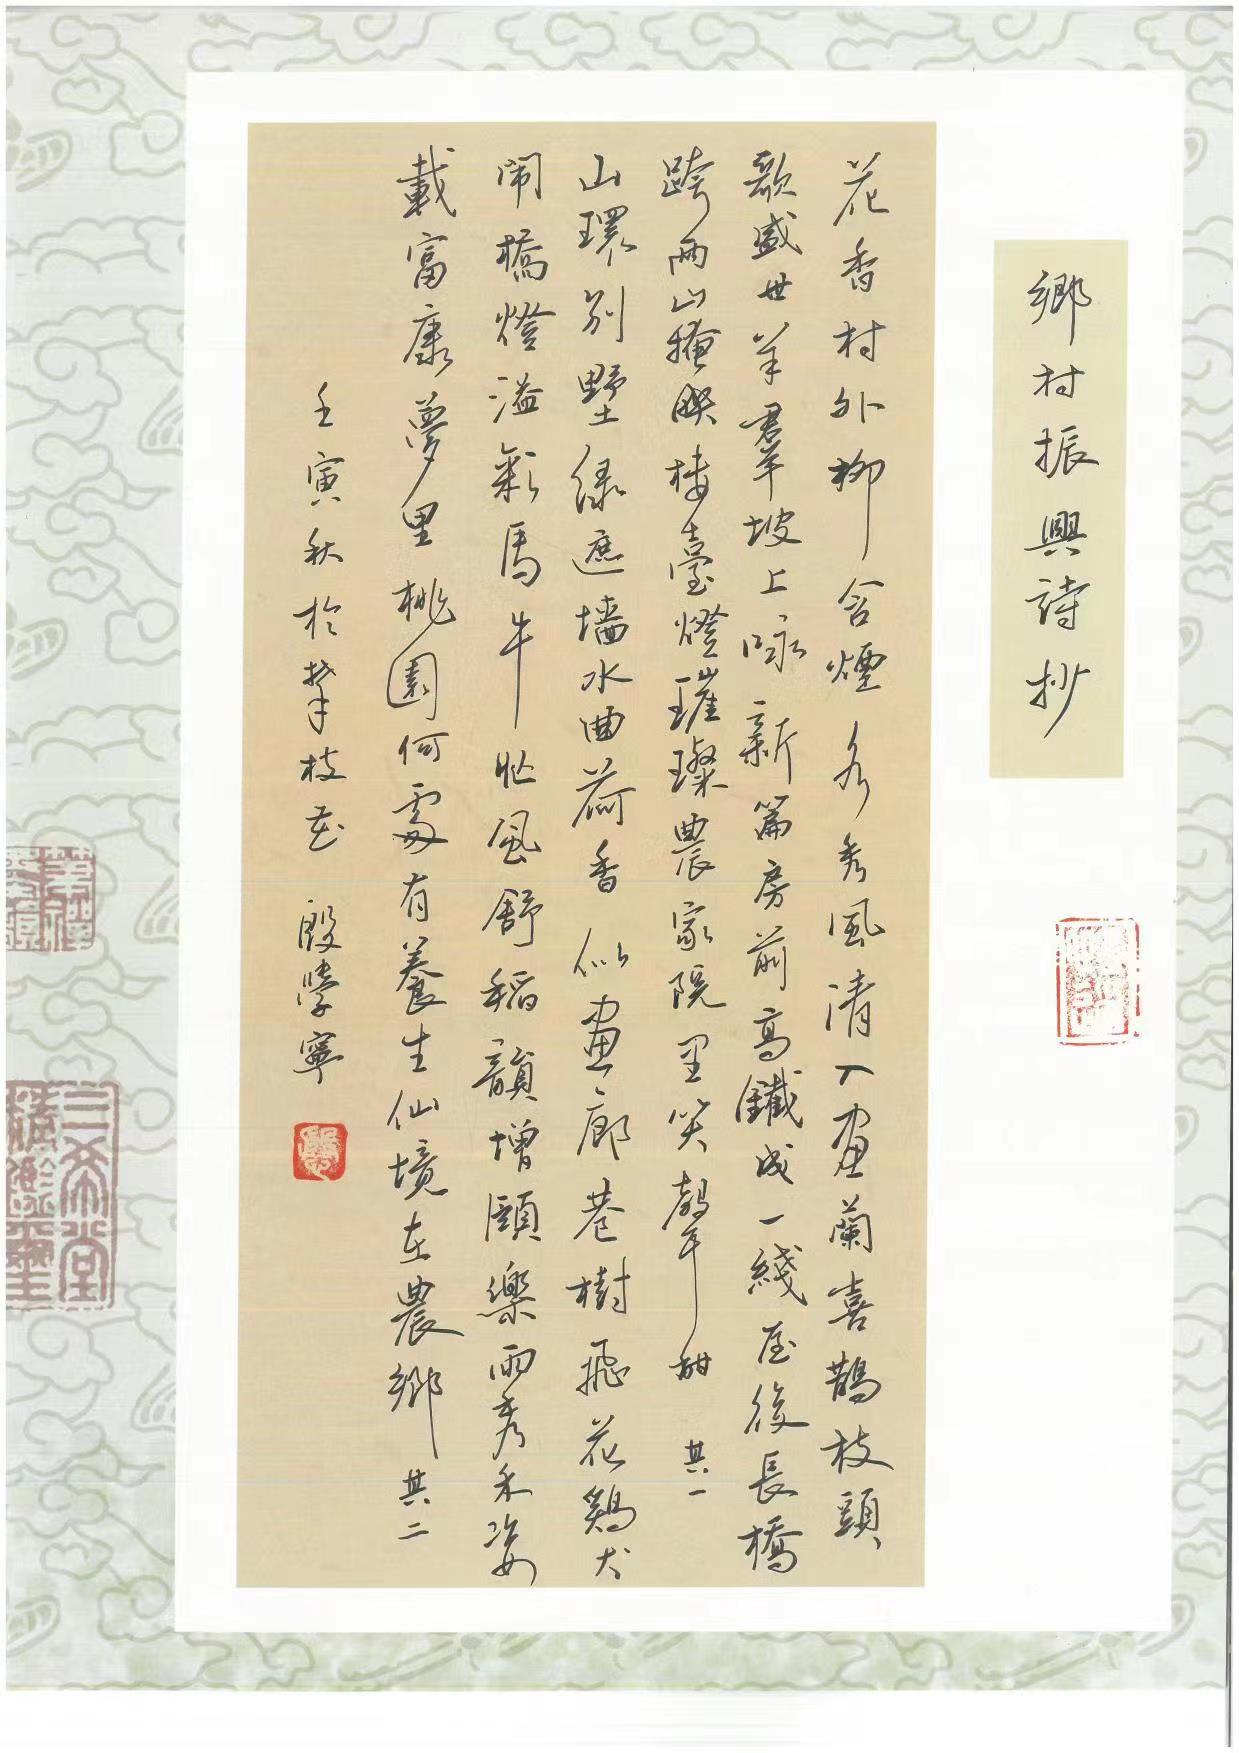 鄉村振興詩抄
花香村外柳含煙水秀風清入画蘭喜鵲枝頭
歌盛世羊羣坡上咏新篇房前高鐵成一綫屋後長橋
跨兩山掩映楼臺燈璀璨農家院里笑聲甜 其一
山環别墅绿遮墙水曲荷香似畫廊巷樹飛花鷄犬
闹橋燈溢彩馬牛忙風舒稻韻增頤樂雨秀禾姿
載富康夢里桃園何處有養生仙境在農鄉 其二
壬寅秋於攀枝花 殷學寧
三希堂